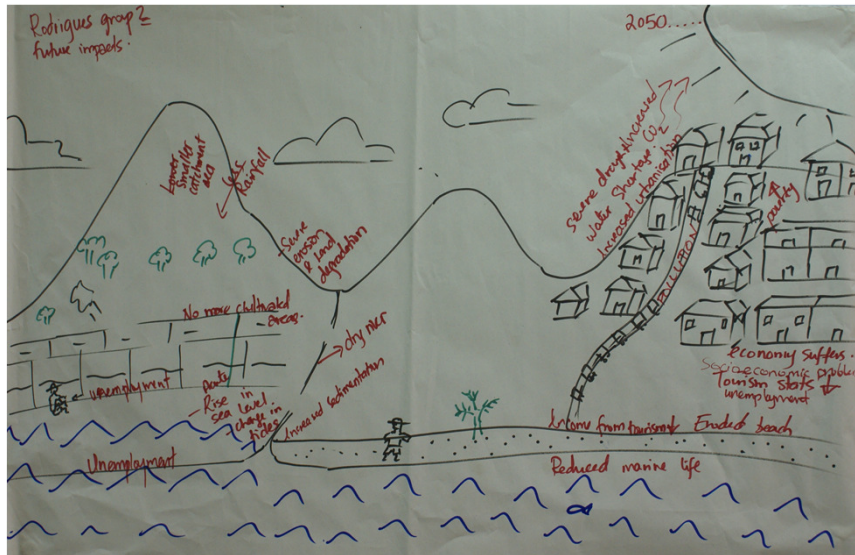 Rodrigues group 2
future impacts.
2050.....
Lower
smaller
catchment
area
Less
Rainfall
Severe
erosion
& land
degradation
severe drought Increased
Water shortage. CO2
Increased urbanisation
POLLUTION
No more cultivated
areas.
dry river
unemployment
- Rise in
sea level
change in
tides
Increased sedimentation
economy suffers.
Socioeconomic problem
Tourism starts ↓
unemployment
Income from tourism↓ Eroded beach
Unemployment
Reduced marine life